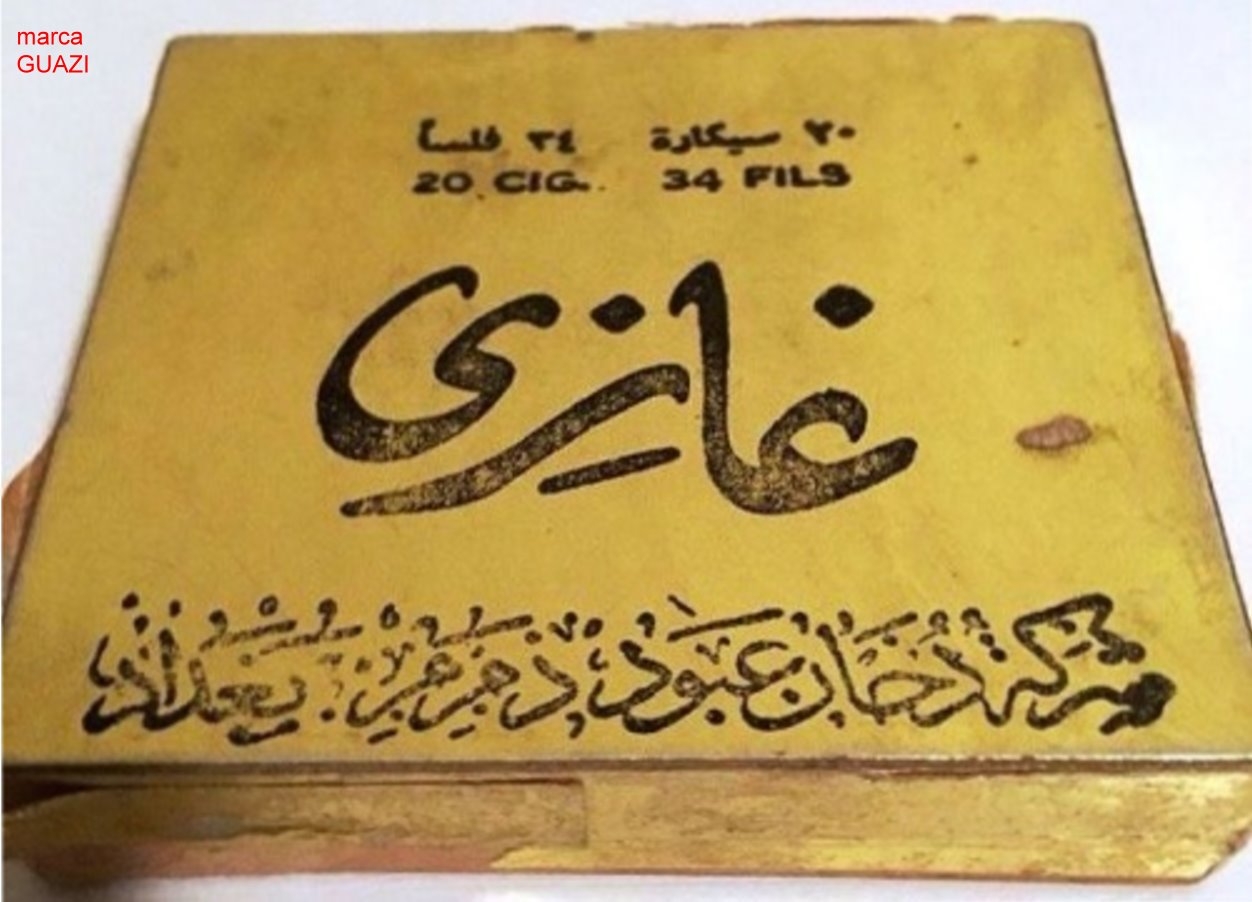 marca
GUAZI
٢٠ سيكارة ٣٤ فلساً
20 CIG. 34 FILS
غازي
شركة دخان عبود بغداد